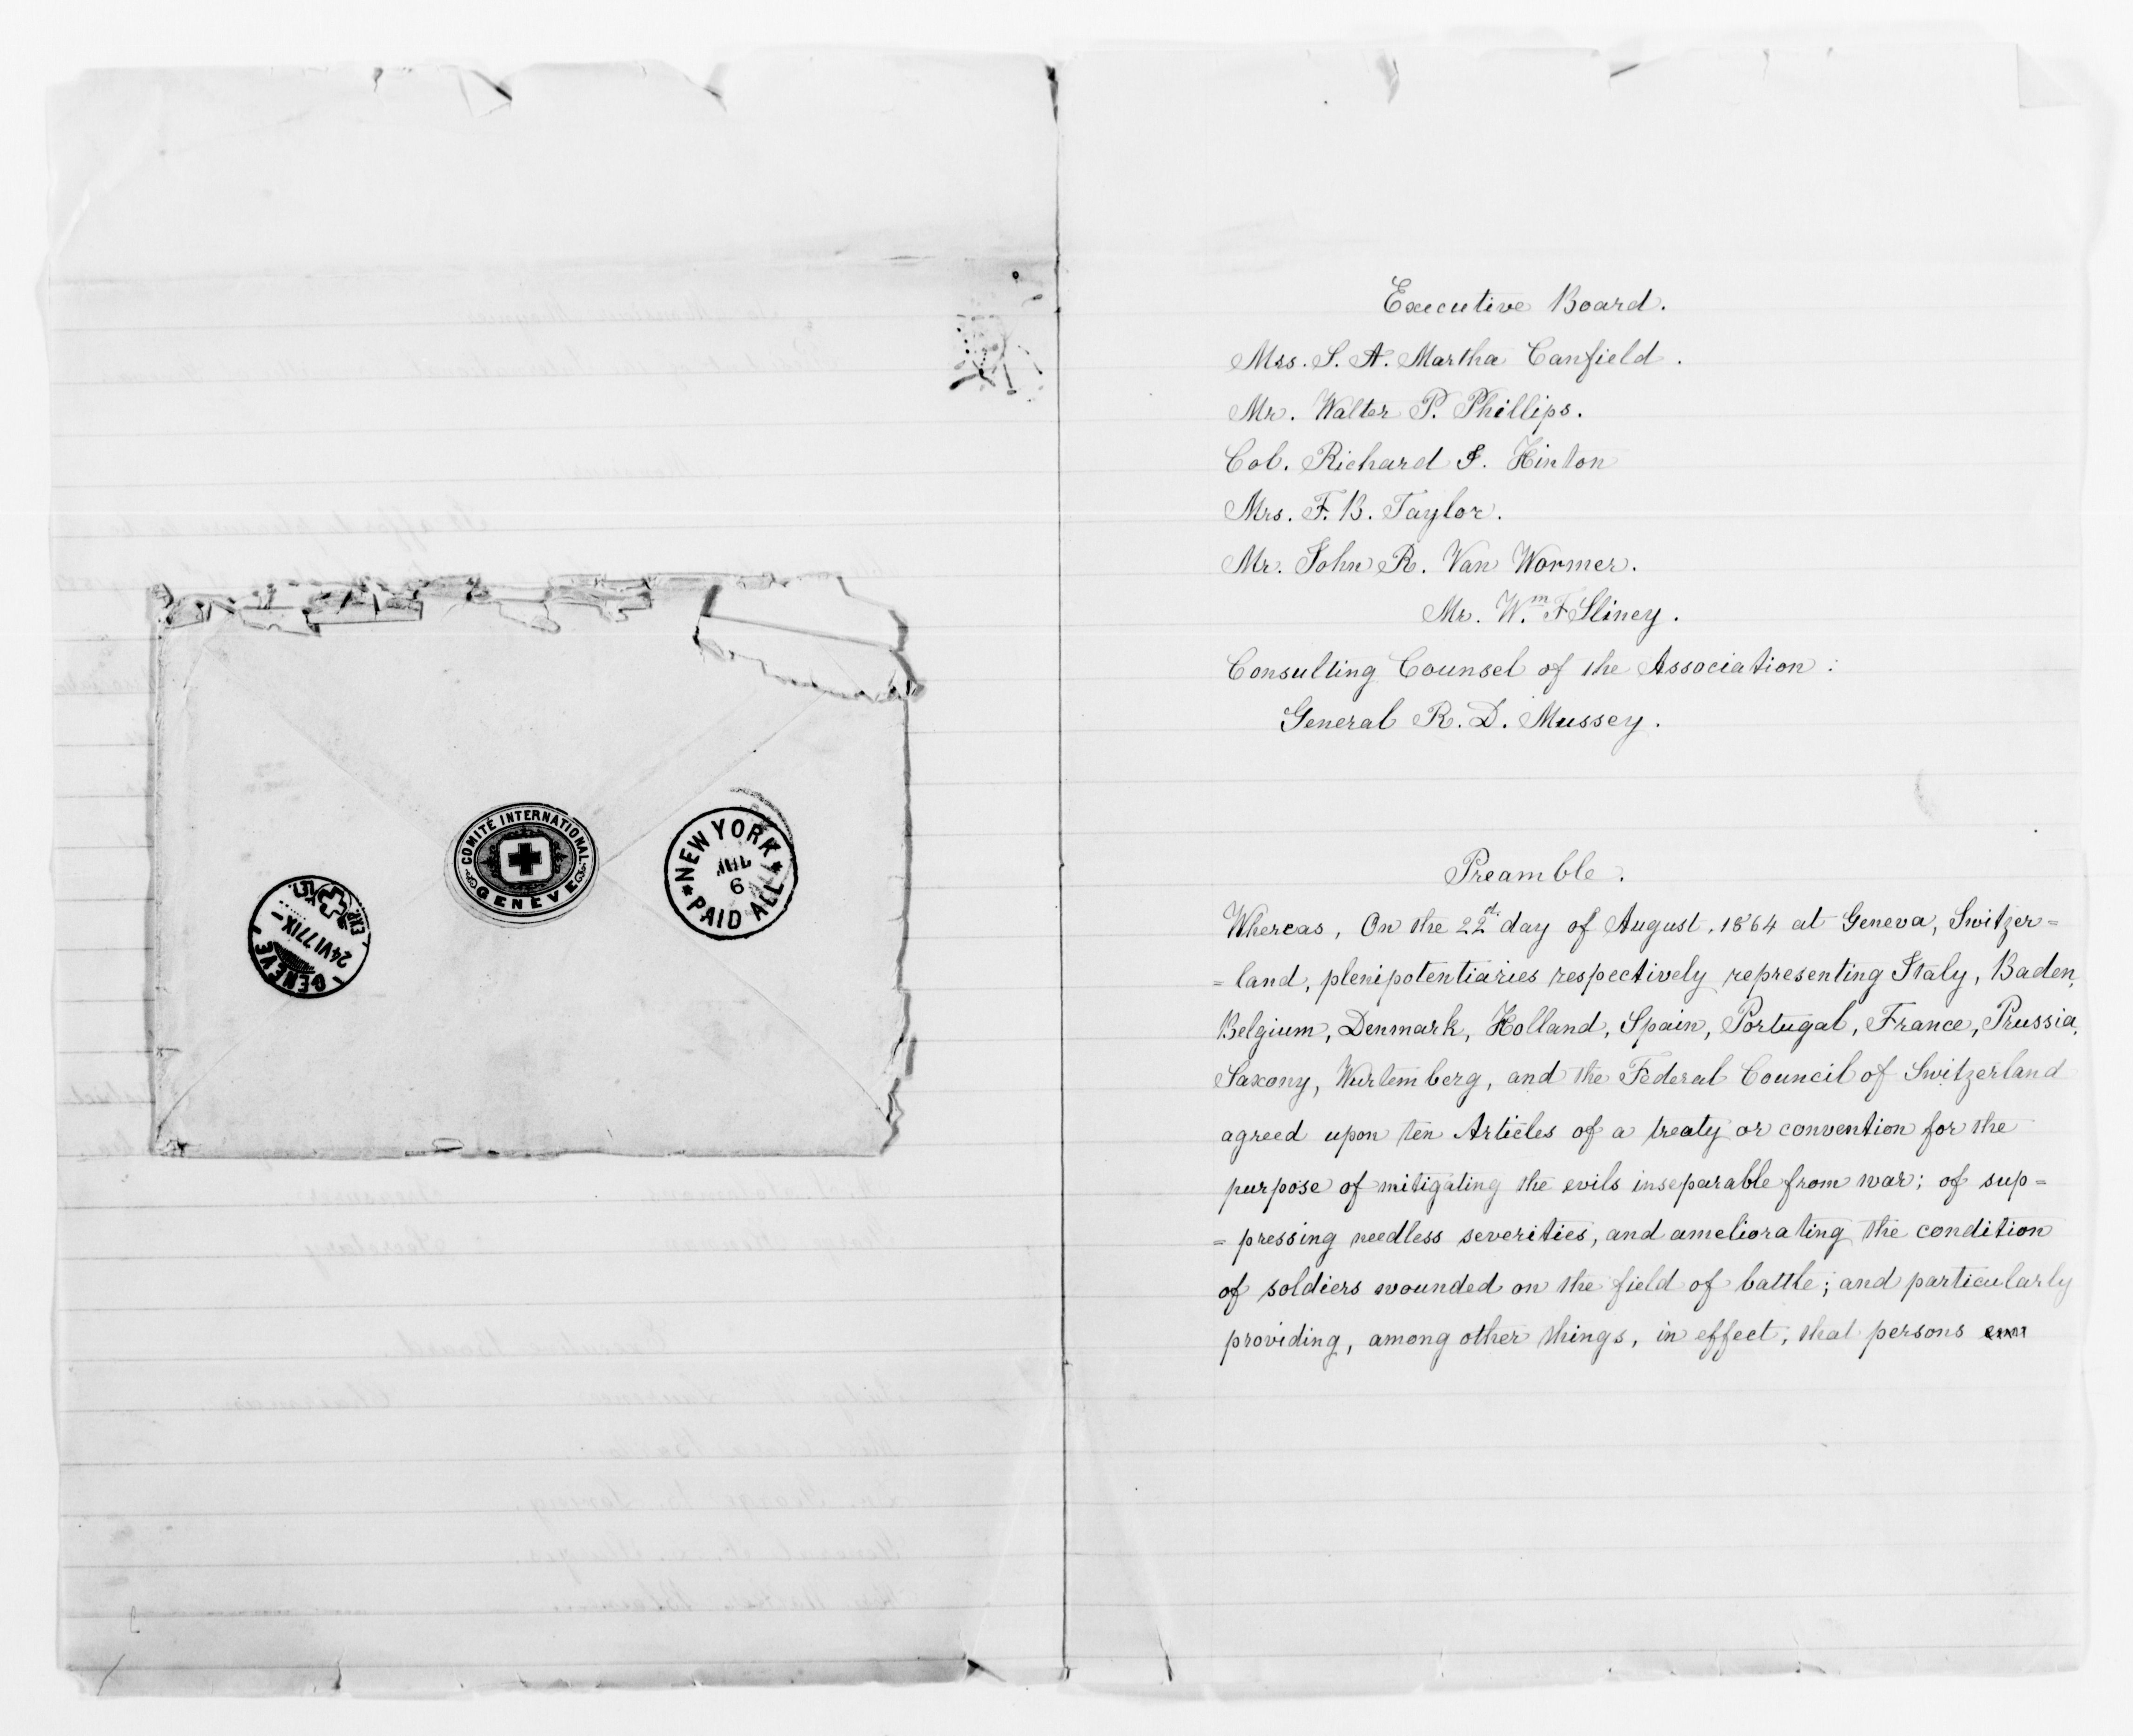 COMITÉ INTERNATIONAL
GENÈVE
NEW YORK
JUL
6
PAID ALL
GENÈVE
24 VI 77 IX
EXP.
Executive Board.
Mrs. S. A. Martha Canfield.
Mr. Walter P. Phillips.
Col. Richard J. Hinton
Mrs. F. B. Taylor.
Mr. John R. Van Wormer.
Mr. Wm. F Sliney.
Consulting Counsel of the Association:
General R. D. Mussey.
Preamble.
Whereas, On the 22d. day of August, 1864 at Geneva, Switzer=
=land, plenipotentiaries respectively representing Italy, Baden,
Belgium, Denmark, Holland, Spain, Portugal, France, Prussia,
Saxony, Wurtemberg, and the Federal Council of Switzerland
agreed upon ten Articles of a treaty or convention for the
purpose of mitigating the evils inseparable from war; of sup=
=pressing needless severities, and ameliorating the condition
of soldiers wounded on the field of battle; and particularly
providing, among other things, in effect, that persons